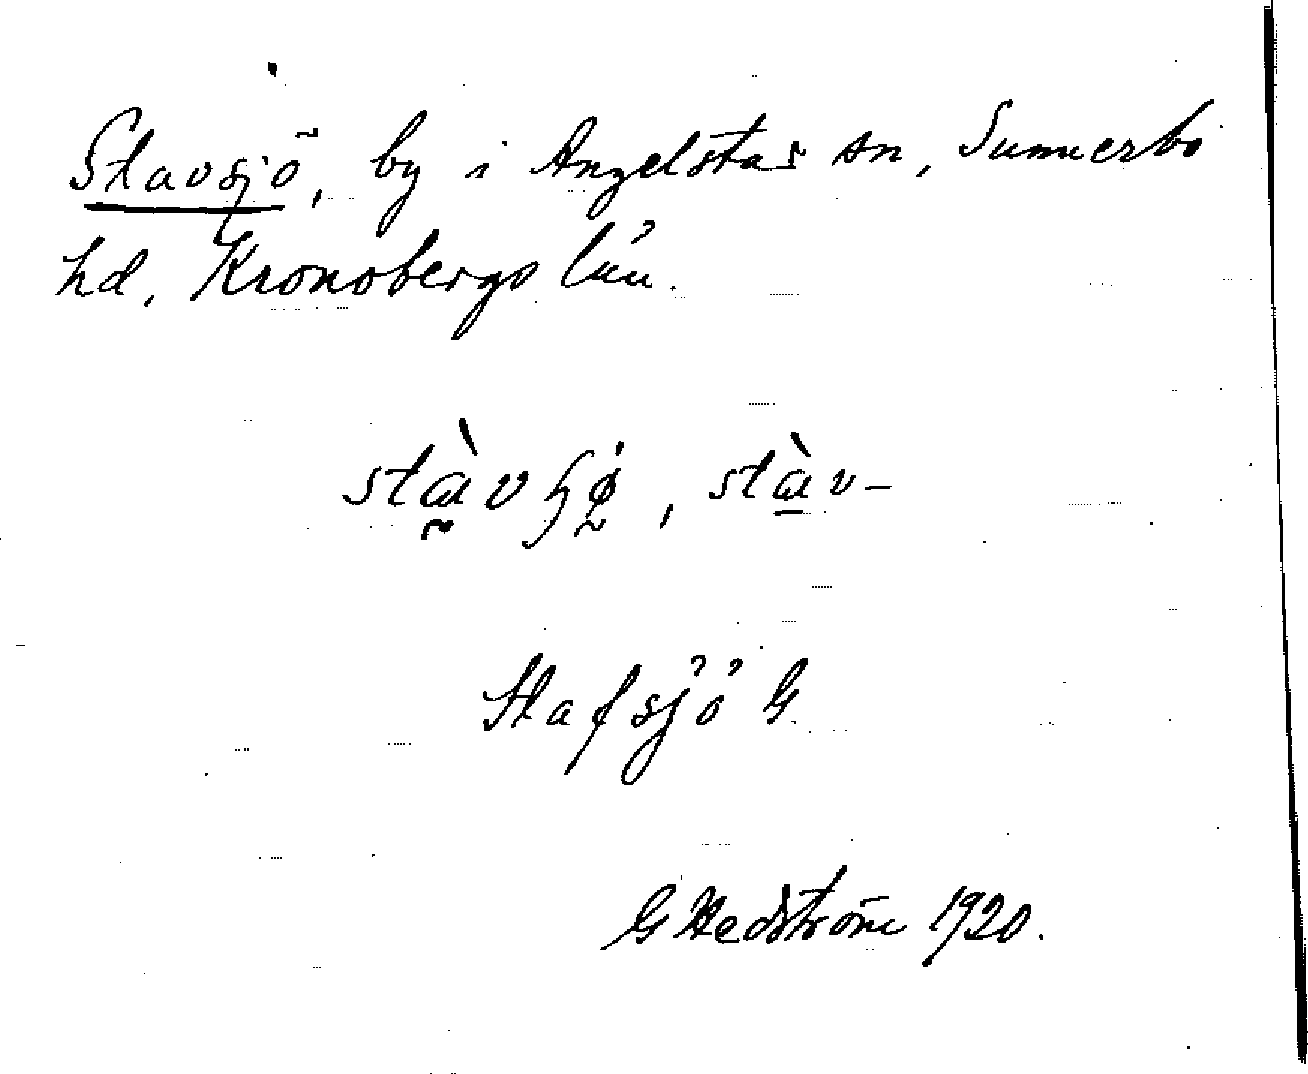 Stavsjö, by i Angelstads sn, Sunnerbo
hd, Kronobergs län.
stɑ̀vɧø, stɑ̀v–
Stafsjö G.
G Hedström 1920.